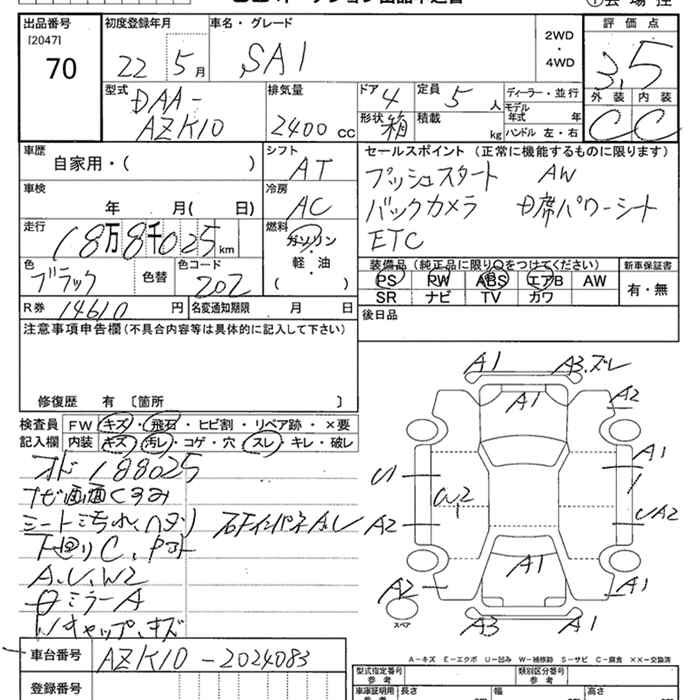 出品番号 初度登録年月 車名・グレード 評価点
[2047] 2WD
70 22年 5月 SAI ・ 3.5
4WD
型式 排気量 ドア 4 定員 5人 ディーラー・並行 外装 内装
DAA- モデル年式 年
AZK10 2400cc 形状 箱 積載 kg ハンドル 左・右 C C
車歴 シフト セールスポイント (正常に機能するものに限ります)
自家用・( ) AT プッシュスタート AW
車検 冷房
年 月( 日) AC バックカメラ 日席パワーシート
走行 燃料
18万8千025km ガソリン・軽・油 ( ) ETC
色 色替 色コード 装備品 (純正品に限り○をつけてください) 新車保証書
ブラック 202 PS PW ABS エアB AW 有・無
SR ナビ TV カワ
R券 14610円 名変通知期限 月 日 後日品
注意事項申告欄(不具合内容等は具体的に記入して下さい)
修復歴 有 〔箇所 〕
検査員 FW キズ・飛石・ヒビ割・リペア跡・×要
記入欄 内装 キズ・汚レ・コゲ・穴・スレ・キレ・破レ
オド 188025
ナビ画面くすみ
シート汚れ、ハタリ
下回りC、
A、U、W2
ミラーA
Wキャップ、キズ
A1 A3.ズレ
A1 A2
A1
U1
W2
A2 UA2
A1
A2 A1
スペア
A3 A1
A-キズ E-エクボ U-凹み W-補修跡 S-サビ C-腐食 XX-交換済
車台番号 AZK10-2024083
登録番号
型式指定番号 参考 類別区分番号 参考
車庫証明用 参考 長さ 幅 高さ